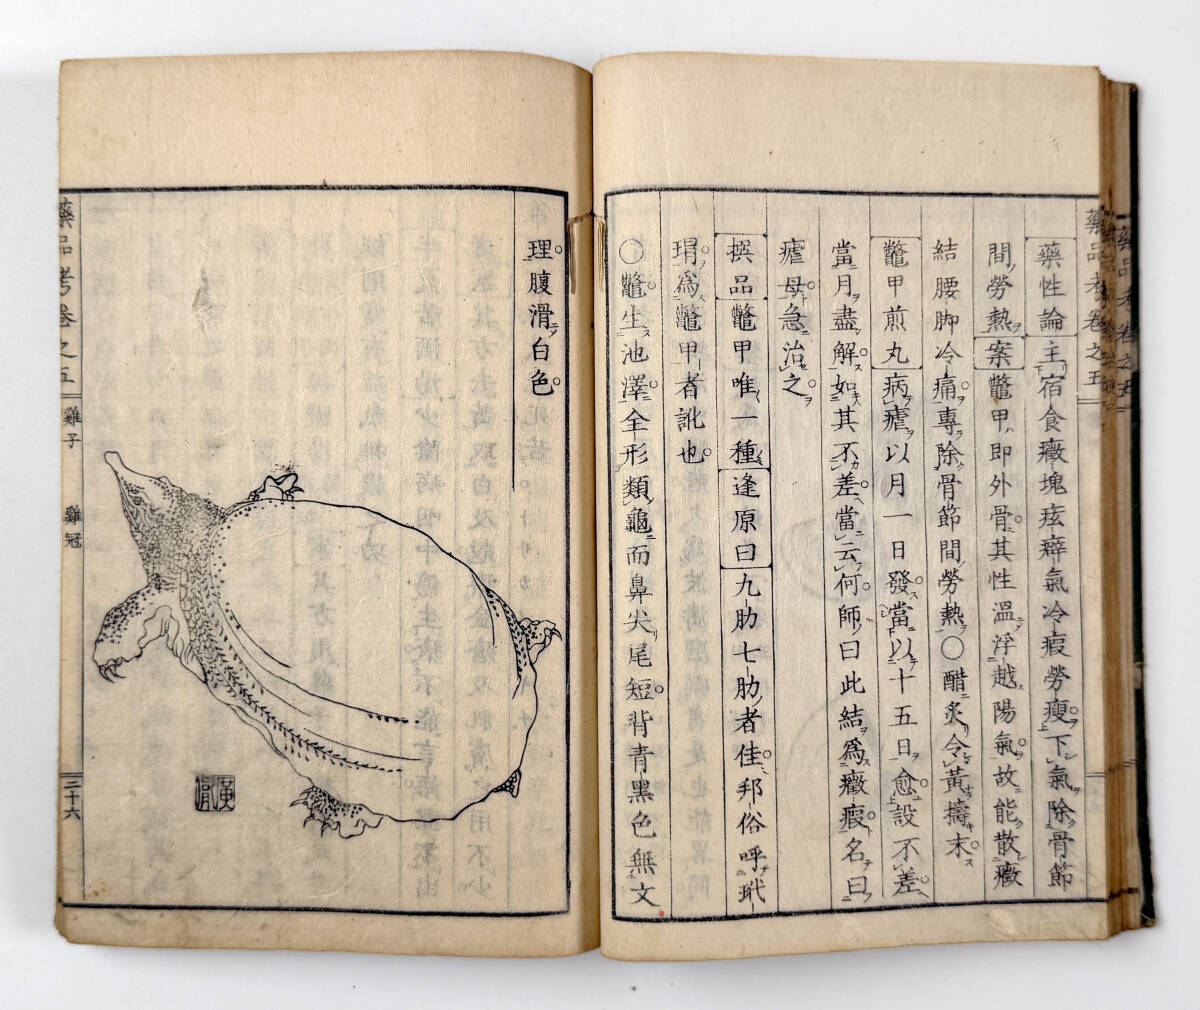 藥品考卷之五
藥品考卷之五
藥性論主宿食癥塊痃癖氣冷瘕勞瘦下氣除骨節
間勞熱案鼈甲即外骨其性溫浮越陽氣故能散癥
結腰脚冷痛專除骨節間勞熱〇醋炙令黃擣末
鼈甲煎丸病瘧以月一日發當以十五日愈設不差
當月盡解如其不差當云何師曰此結爲癥瘕名曰
瘧母急治之
撰品鼈甲唯一種逢原曰九肋七肋者佳邦俗呼玳
瑁爲鼈甲者訛也
〇鼈生池澤全形類龜而鼻尖尾短背青黑色無文
理腹滑白色
藥品考卷之五
雞子
雞冠
二十六